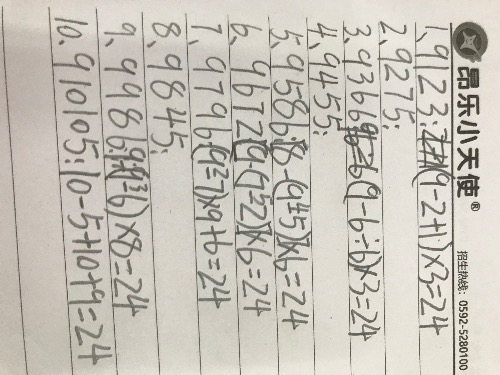 昂乐小天使® 招生热线：0592-5280100
1、9123:(9-2+1)×3=24
2、9275:
3、9366:(9-6÷6)×3=24
4、9455:
5、9586:[8-(9-5)]×6=24
6、9672:[9-(7-2)]×6=24
7、9796:(9-7)×9+6=24
8、9845:
9、9986:9÷(9-6)×8=24
10、910105:10-5+10+9=24